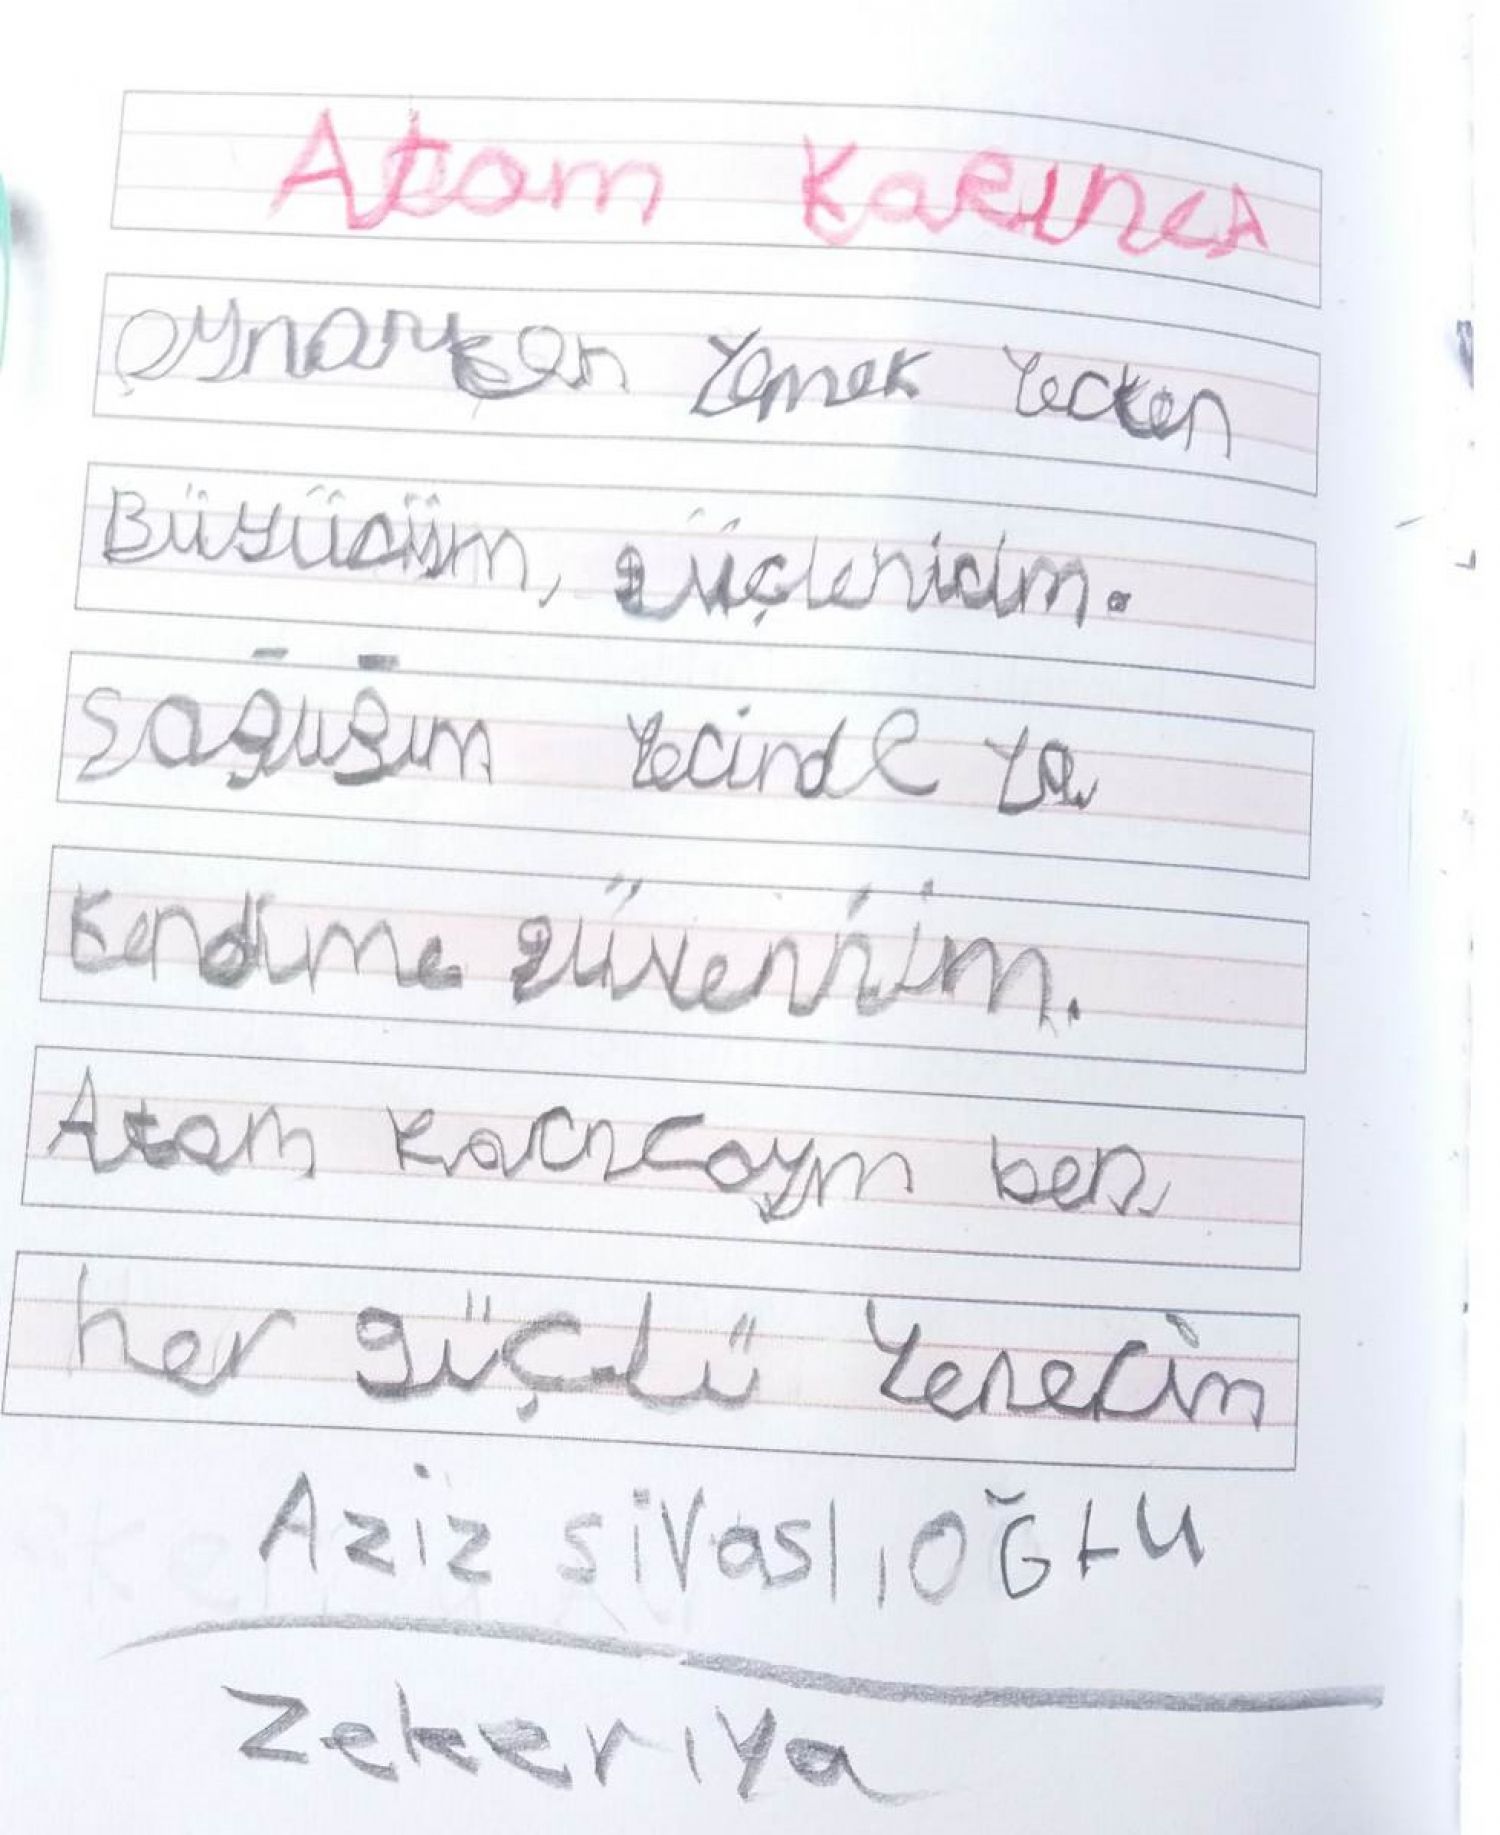 Atom KARıncA
oynarken Yemek Yerken
Büyürüm, güçlenirim.
Sağlığım Yerinde ya
Kendime güvenirim.
Atom Karıncaym ben
her güçlü Yenerim
Aziz SİVaslıOĞLU
Zekerıya